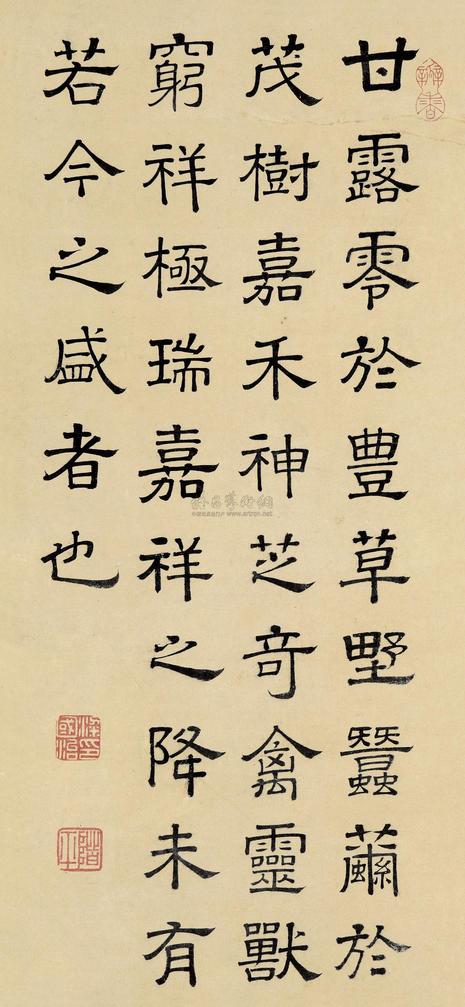 甘露零於豊草野蠶繭於
茂樹嘉禾神芝奇禽靈獸
窮祥極瑞嘉祥之降未有
若今之盛者也
www.artron.net